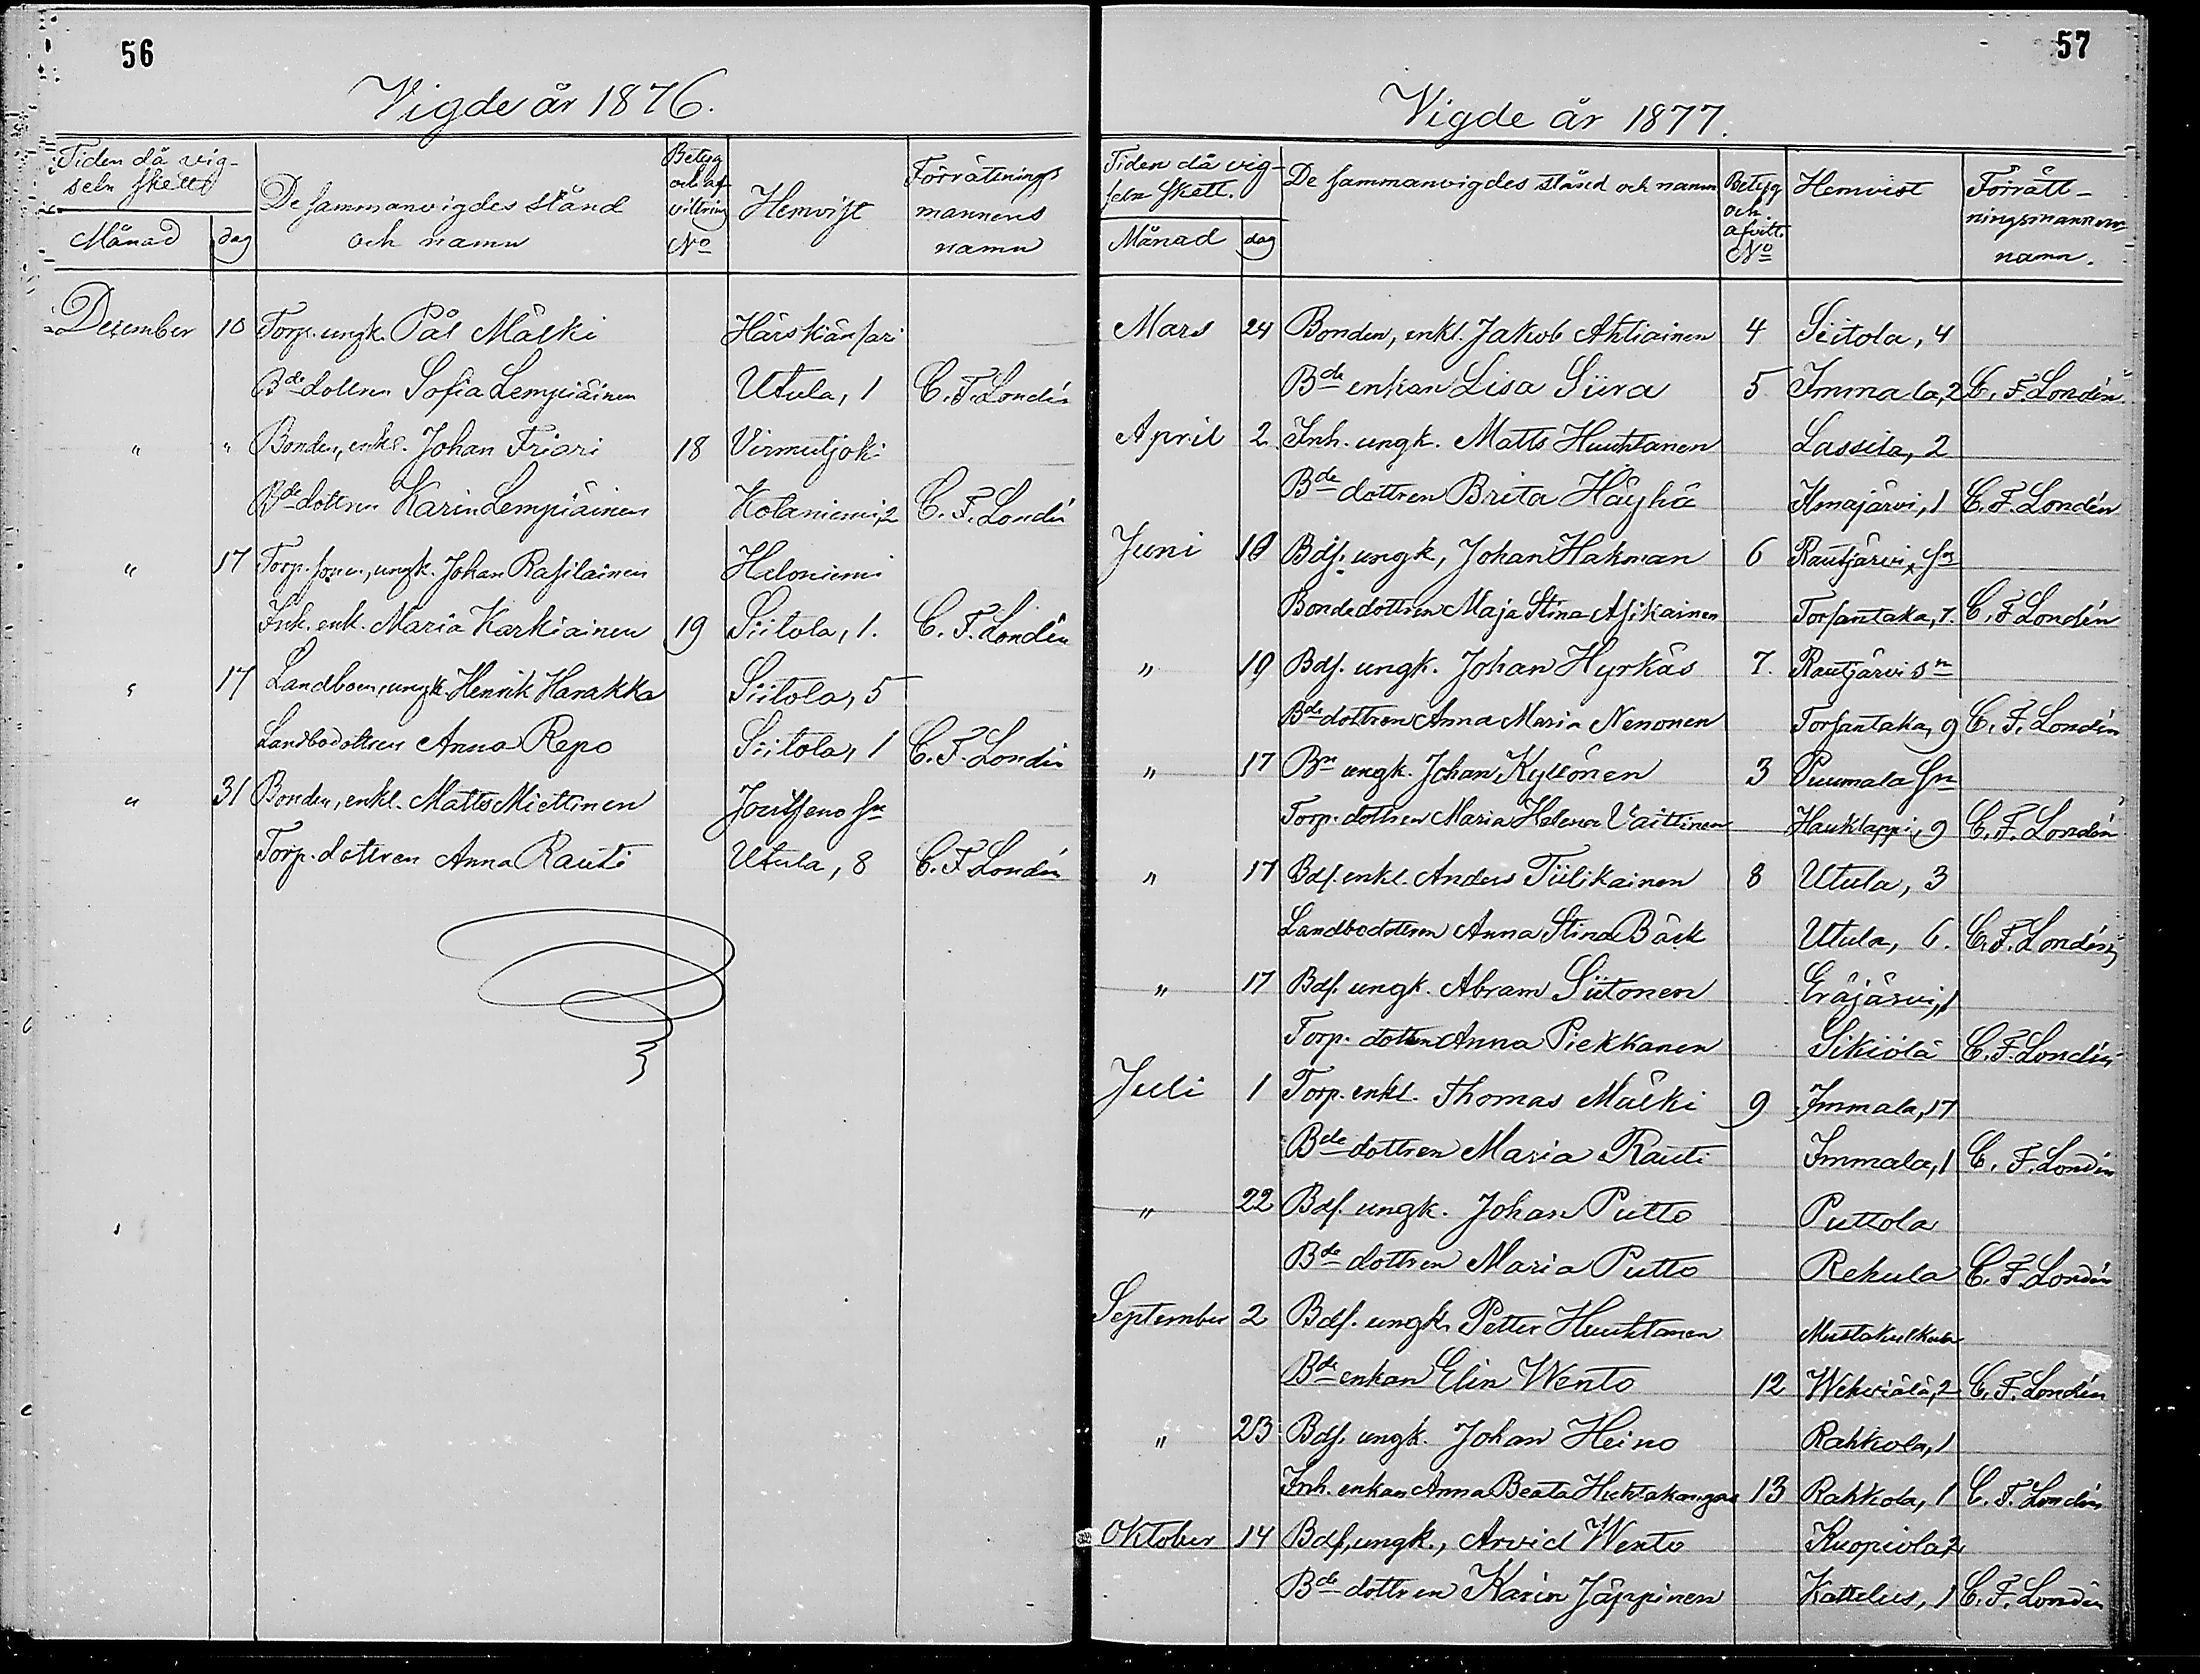 56
Vigde år 1876.
Tiden då vig-
seln skett
Månad dag
De sammanvigdes stånd
och namn
Betyg
och af-
vittring
No
Hemvist
Förrättnings
mannens
namn
December 10 Torp. ungk. Pål Mälki Härskiänsari
Bde dottren Sofia Lempiäinen Utula, 1 C. F. Londén
" " Bonden, enkl. Johan Friari 18 Virmutjoki
Bde dottren Karin Lempiäinen Kotaniemi, 2 C. F. Londén
" 17 Torp. sonen, ungk. Johan Rasilainen Heloniemi
Inh. enk. Maria Karkiainen 19 Siitola, 1. C. F. Londén
" 17 Landboen, ungk. Henrik Harakka Siitola, 5
Landbodottren Anna Repo Siitola, 1 C. F. Londén
" 31 Bonden, enkl. Matts Miettinen Joutseno sn
Torp. dottren Anna Rauti Utula, 8 C. F. Londén
57
Vigde år 1877.
Tiden då vig-
seln skett.
Månad dag
De sammanvigdes stånd och namn
Betyg
och
afvitt.
No
Hemvist
Förrätt-
ningsmannens
namn.
Mars 24 Bonden, enkl. Jakob Ahtiainen 4 Siitola, 4
Bde enkan Lisa Siira 5 Immala, 2 C. F. Londén
April 2 Inh. ungk. Matts Huuhtanen Lassila, 2
Bde dottren Brita Häyhä Ilmajärvi, 1 C. F. Londén
Juni 10 Bdf. ungk, Johan Hakman 6 Rautjärvi, sn
Bondedottren Maja Stina Asikainen Torsantaka, 7. C. F. Londén
" 10 Bdf. ungk. Johan Hyrkäs 7. Rautjärvi sn
Bde dottren Anna Maria Nenonen Torsantaka, 9 C. F. Londén
" 17 Bn ungk. Johan Kyllönen 3 Puumala sn
Torp. dottren Maria Helena Vaittinen Hauklappi, 9 C. F. Londén
" 17 Bdf. enkl. Anders Tiilikainen 8 Utula, 3
Landbodottren Anna Stina Bäck Utula, 6. C. F. Londén
" 17 Bdf. ungk. Abram Siitonen Eräjärvi, 1
Torp. dottren Anna Piekkanen Sikiölä C. F. Londén
Juli 1 Torp. enkl. Thomas Mälki 9 Immala, 17
Bde dottren Maria Rauti Immala, 1 C. F. Londén
" 22 Bdf. ungk. Johan Putto Puttola
Bde dottren Maria Putto Rekula C. F. Londén
September 2 Bdf. ungk. Petter Huuhtanen
Bde enkan Elin Wento 12 Wehviälä, 2 C. F. Londén
" 23 Bdf. ungk. Johan Heino Rahkola, 1
Inh. enkan Anna Beata Huhtakangas 13 Rahkola, 1 C. F. Londén
Oktober 14 Bdf, ungk., Arvid Wento Kuopiola 2
Bde dottren Karin Jäppinen Kattelus, 1 C. F. Londén